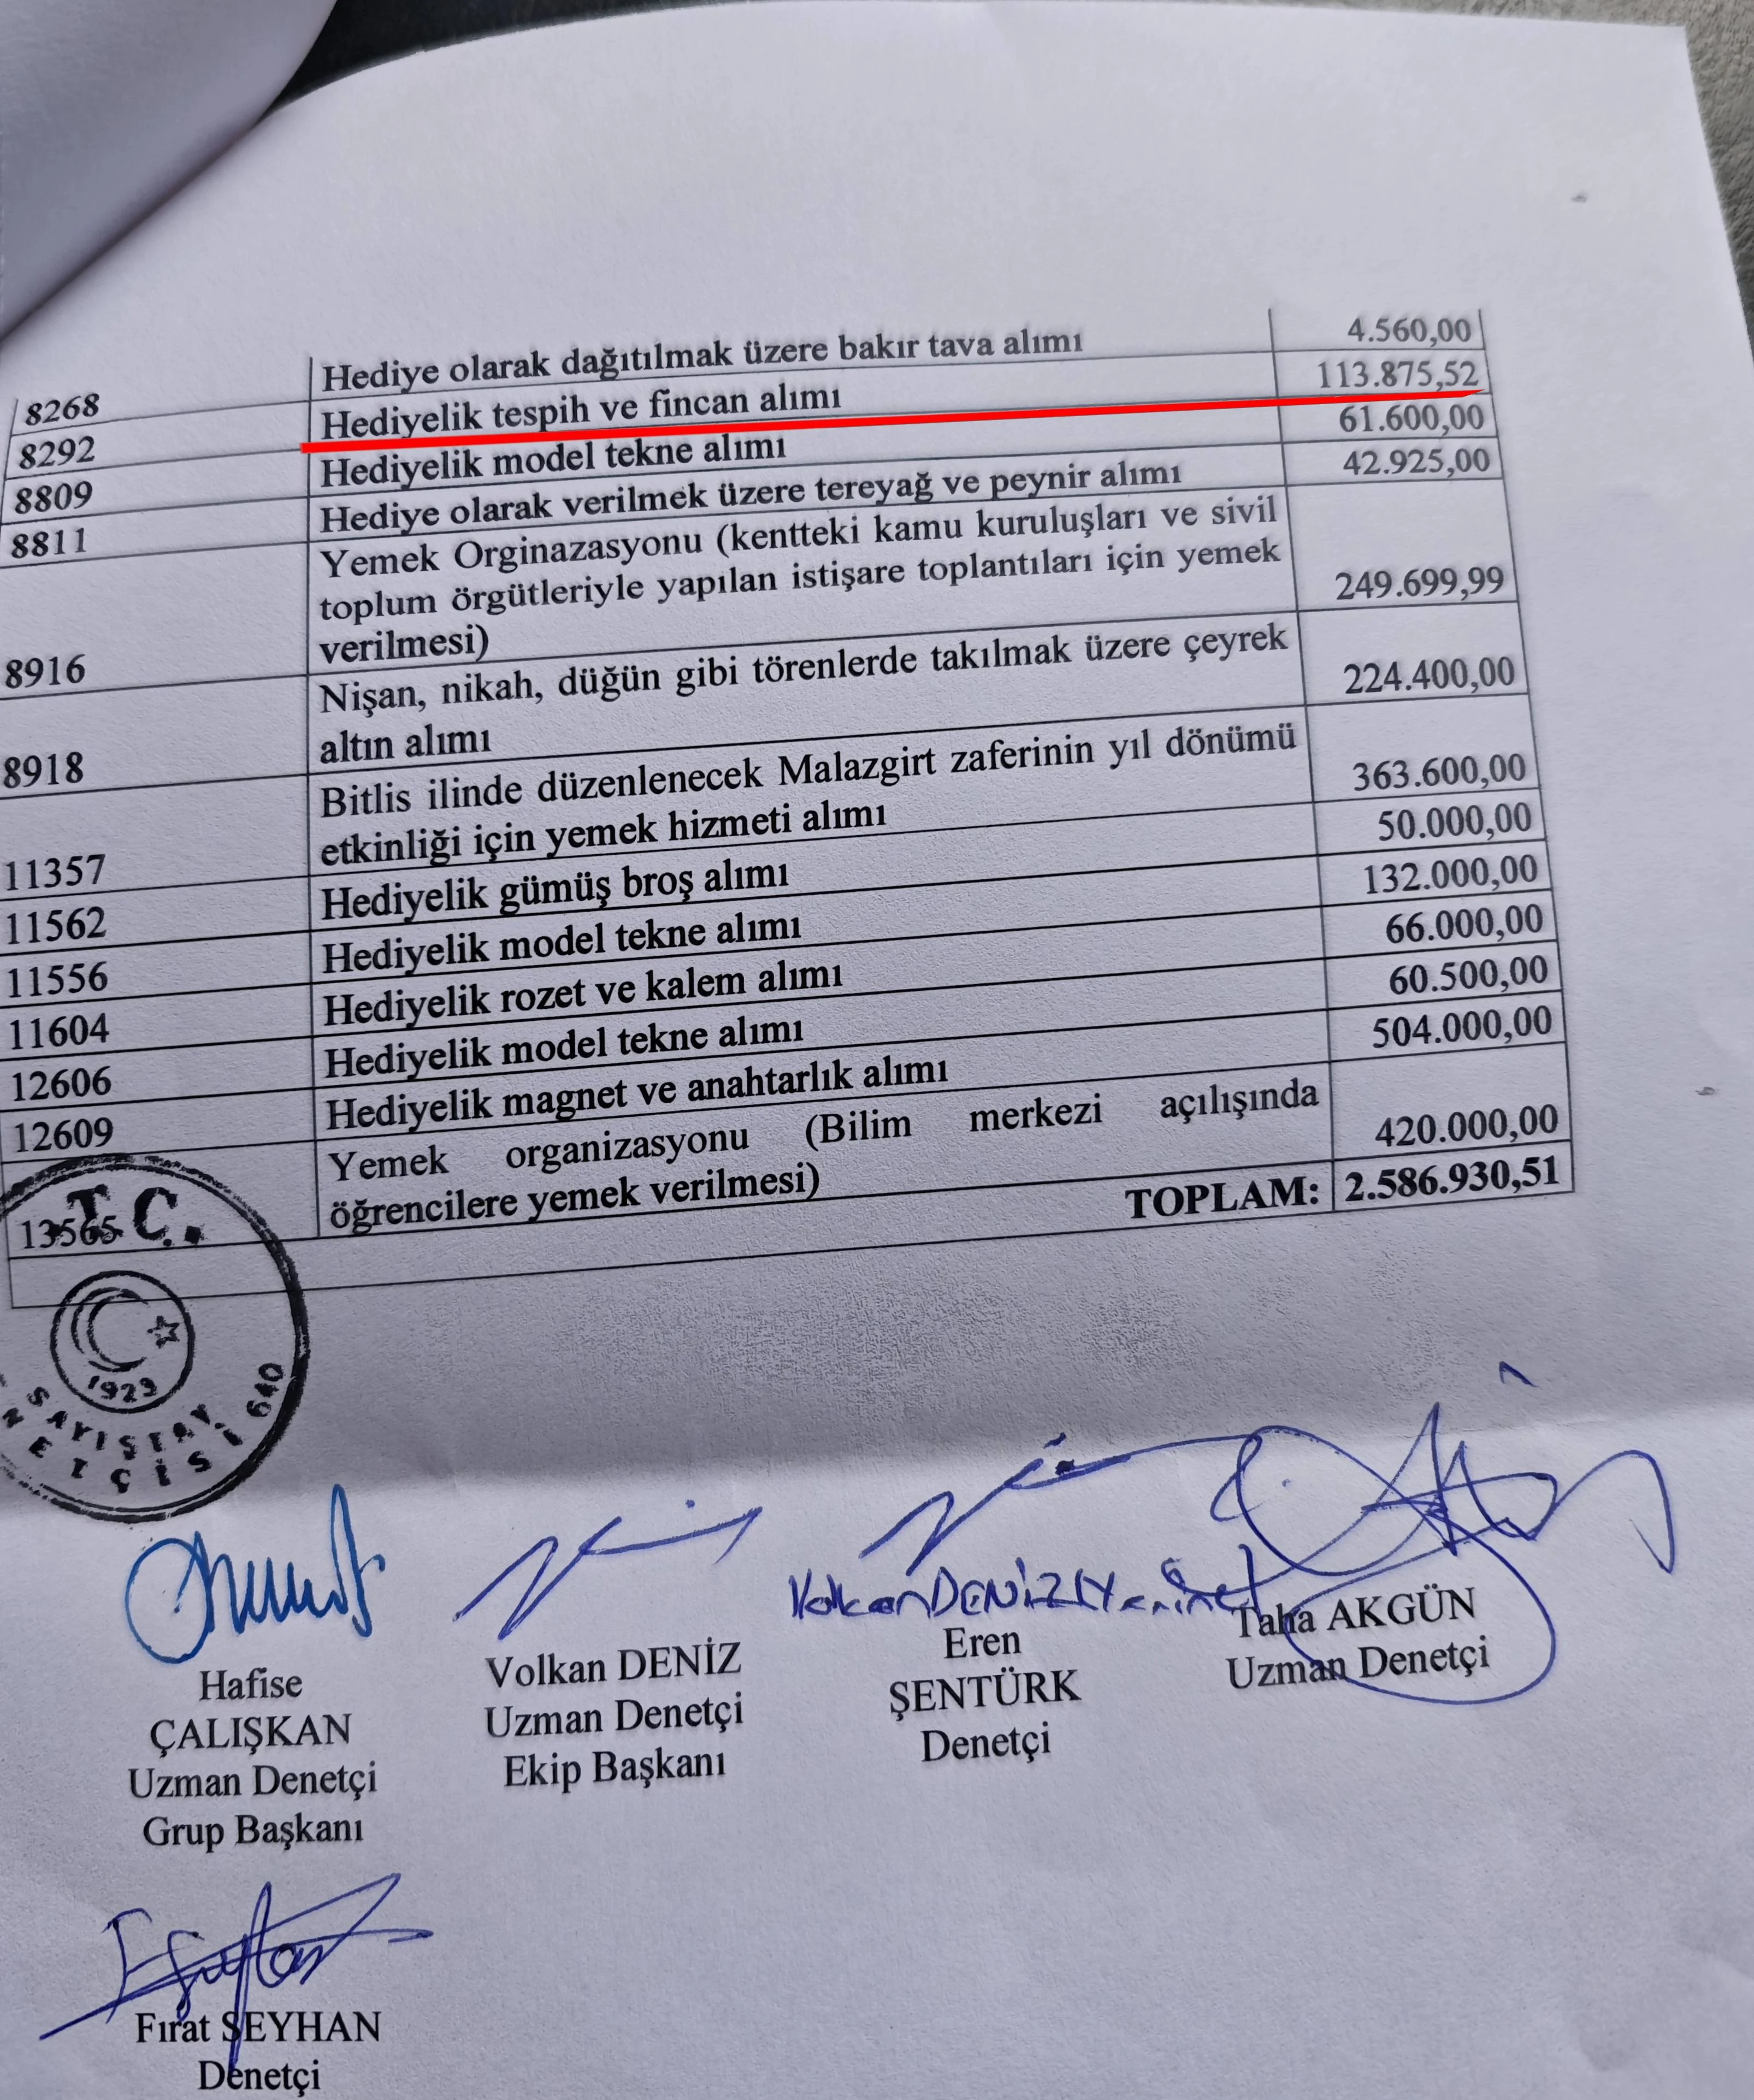 8268 Hediye olarak dağıtılmak üzere bakır tava alımı 4.560,00
8292 Hediyelik tespih ve fincan alımı 113.875,52
8809 Hediyelik model tekne alımı 61.600,00
8811 Hediye olarak verilmek üzere tereyağ ve peynir alımı 42.925,00
Yemek Orginazasyonu (kentteki kamu kuruluşları ve sivil
toplum örgütleriyle yapılan istişare toplantıları için yemek
8916 verilmesi) 249.699,99
Nişan, nikah, düğün gibi törenlerde takılmak üzere çeyrek
8918 altın alımı 224.400,00
Bitlis ilinde düzenlenecek Malazgirt zaferinin yıl dönümü
11357 etkinliği için yemek hizmeti alımı 363.600,00
11562 Hediyelik gümüş broş alımı 50.000,00
11556 Hediyelik model tekne alımı 132.000,00
11604 Hediyelik rozet ve kalem alımı 66.000,00
12606 Hediyelik model tekne alımı 60.500,00
12609 Hediyelik magnet ve anahtarlık alımı 504.000,00
Yemek organizasyonu (Bilim merkezi açılışında
13565 öğrencilere yemek verilmesi) 420.000,00
TOPLAM: 2.586.930,51
T.C.
1923
SAYIŞTAY
NETÇİSİ 640
Volkan DENİZ
Hafise
ÇALIŞKAN
Uzman Denetçi
Grup Başkanı
Volkan DENİZ
Uzman Denetçi
Ekip Başkanı
Eren
ŞENTÜRK
Denetçi
Taha AKGÜN
Uzman Denetçi
Fırat SEYHAN
Denetçi